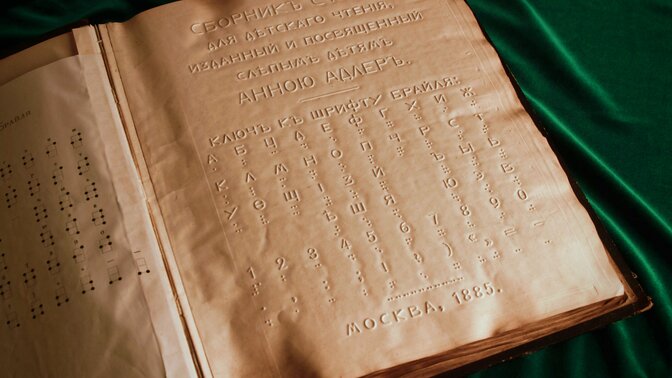 СБОРНИКЪ
ДЛЯ ДѢТСКАГО ЧТЕНІЯ,
ИЗДАННЫЙ И ПОСВЯЩЕННЫЙ
СЛѢПЫМЪ ДѢТЯМЪ
АННОЮ АДЛЕРЪ.
КЛЮЧЪ КЪ ШРИФТУ БРАЙЛЯ:
А Б Ц Д Е Ф Г Х И Ж
К Л М Н О П Ч Р С Т
У Ѳ Щ І З Й Ы Ь Ѣ
Ъ Ш Я Ю Э
1 2 3 4 5 6 7 8 9 0
МОСКВА, 1885.